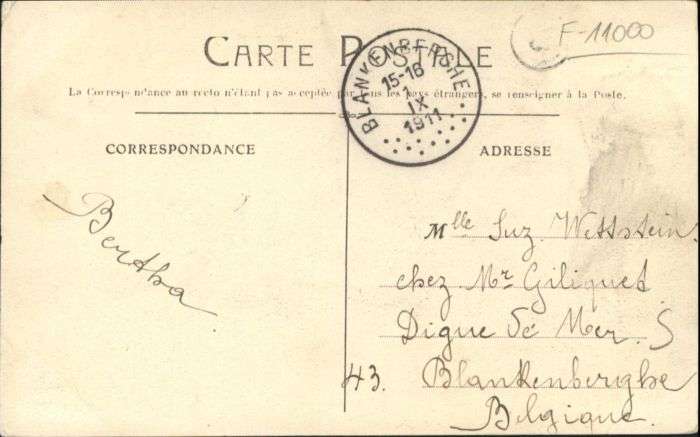 F-11000
CARTE POSTALE
BLANKENBERGHE
15-16
1
IX
1911
La Correspondance au recto n'étant pas acceptée par tous les pays étrangers, se renseigner à la Poste.
CORRESPONDANCE
ADRESSE
Bertha
Mlle Suz. Wettstein
chez Mr Giliquet
Digue de Mer. S
43. Blankenberghe
Belgique.